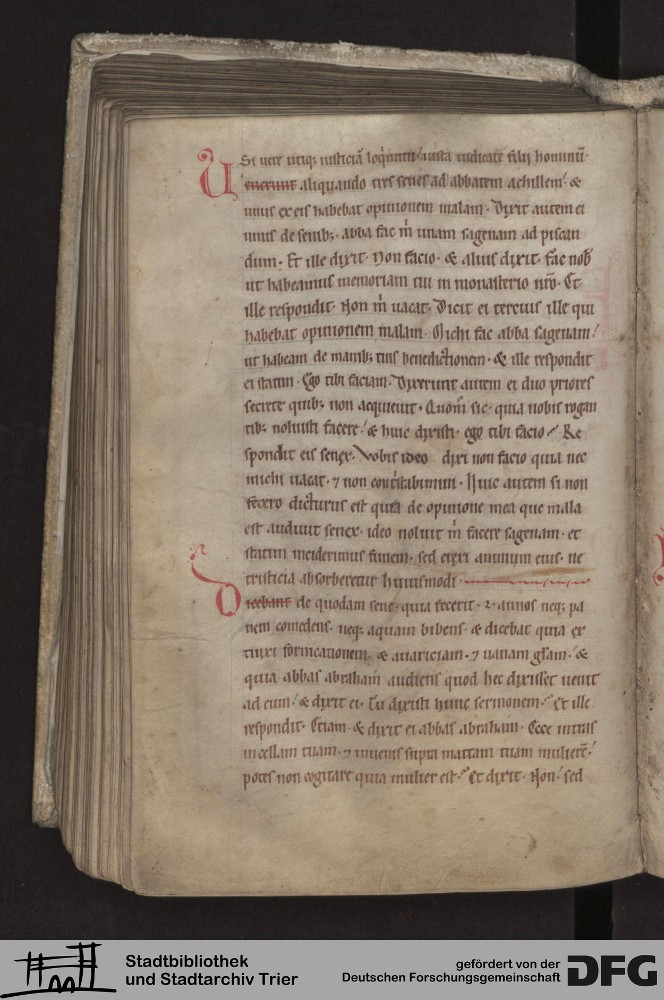 Si uere utiq; iusticiā loq̄mini / iusta iudicate filii hominū·
Uenerunt aliquando tres senes ad abbatem achillem / &
unus ex eis habebat opinionem malam · Dixit autem ei
unus de senib; · abba fac m̄ unam sagenam ad piscan
dum · Et ille dixit · Non facio · & alius dixit · Fac nob̄
ut habeamus memoriam tui in monasterio nr̄o · Et
ille respondit · Non m̄ uacat · Dicit ei tercius ille qui
habebat opinionem malam · Michi fac abba sagenam /
ut habeam de manib; tuis benedictionem · & ille respondit
ei statim · Ego tibi faciam · Dixerunt autem ei duo priores
secrete quib; non acquieuit · Quom̄ sic · quia nobis rogan
tib; noluisti facere / & huic dixisti · ego tibi facio · Re
spondit eis senex · Vobis ideo dixi non facio quia nec
michi uacat · ⁊ non contristabimini · Huic autem si non
fecero dicturus est quia de opinione mea que mala
est audiuit senex · ideo noluit m̄ facere sagenam · et
statim inciderimus funem · sed erexi animum eius · ne
tristicia absorberetur huiusmodi
Dicebant de quodam sene · quia fecerit · annos neq; pa
nem comedens · neq; aquam bibens · & dicebat quia ex
tinxi fornicationem · & auariciam · ⁊ uanam gl̄am · &
quia abbas abraham audiens quod hec dixisset uenit
ad eum / & dixit ei · Tu dixisti hunc sermonem · Et ille
respondit · Etiam · & dixit ei abbas abraham · Ecce intras
in cellam tuam · ⁊ inuenis supra mattam tuam mulierē /
potes non cogitare quia mulier est · Et dixit · Non / sed
Stadtbibliothek
und Stadtarchiv Trier
gefördert von der
Deutschen Forschungsgemeinschaft
DFG